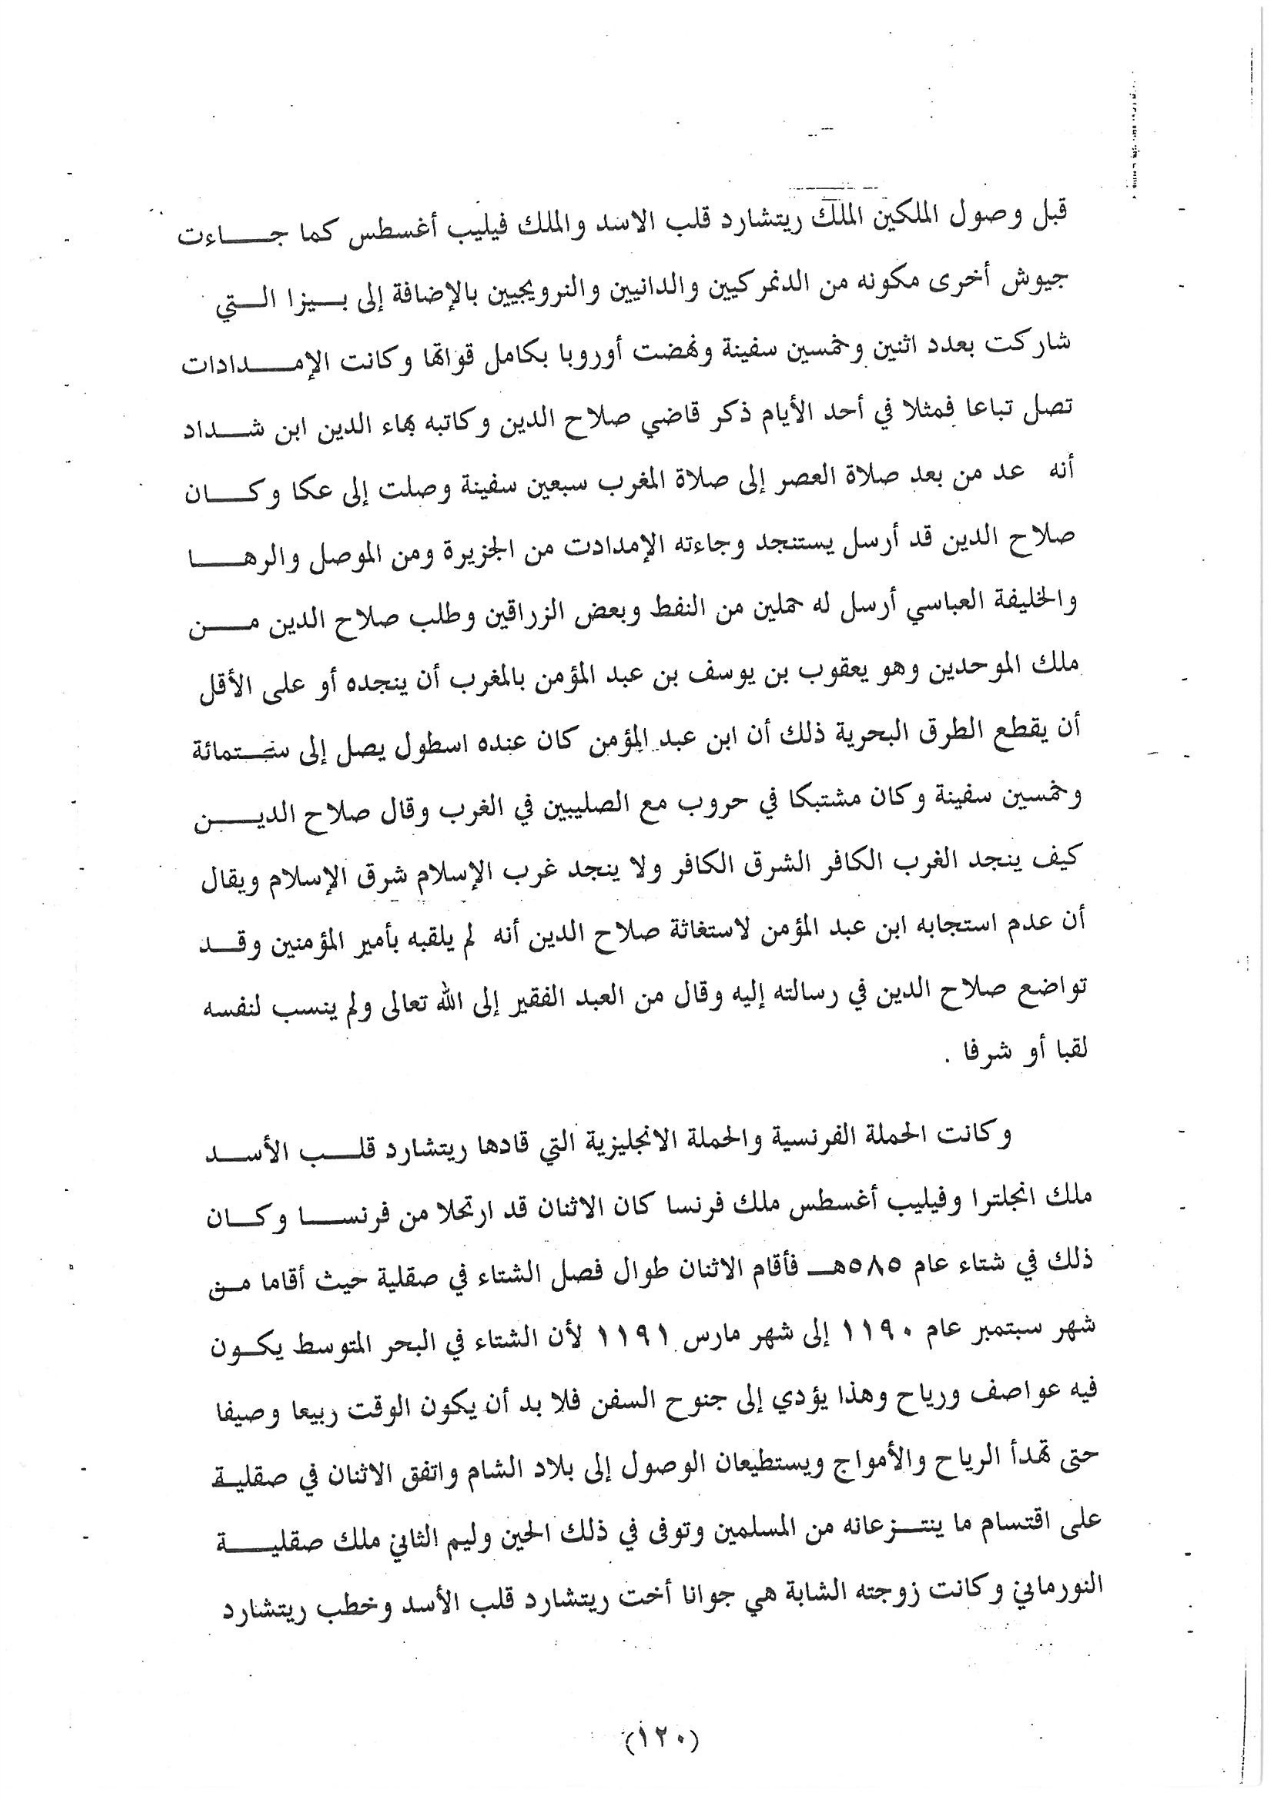 قبل وصول الملكين الملك ريتشارد قلب الاسد والملك فيليب أغسطس كما جاءت
جيوش أخرى مكونه من الدنمركيين والدانيين والنرويجيين بالإضافة إلى بيزا التي
شاركت بعدد اثنين وخمسين سفينة ونهضت أوروبا بكامل قواتها وكانت الإمدادات
تصل تباعا فمثلا في أحد الأيام ذكر قاضي صلاح الدين وكاتبه بهاء الدين ابن شداد
أنه عد من بعد صلاة العصر إلى صلاة المغرب سبعين سفينة وصلت إلى عكا وكان
صلاح الدين قد أرسل يستنجد وجاءته الإمدادت من الجزيرة ومن الموصل والرها
والخليفة العباسي أرسل له حملين من النفط وبعض الزراقين وطلب صلاح الدين من
ملك الموحدين وهو يعقوب بن يوسف بن عبد المؤمن بالمغرب أن ينجده أو على الأقل
أن يقطع الطرق البحرية ذلك أن ابن عبد المؤمن كان عنده اسطول يصل إلى ستمائة
وخمسين سفينة وكان مشتبكا في حروب مع الصليبين في الغرب وقال صلاح الدين
كيف ينجد الغرب الكافر الشرق الكافر ولا ينجد غرب الإسلام شرق الإسلام ويقال
أن عدم استجابه ابن عبد المؤمن لاستغاثة صلاح الدين أنه لم يلقبه بأمير المؤمنين وقد
تواضع صلاح الدين في رسالته إليه وقال من العبد الفقير إلى الله تعالى ولم ينسب لنفسه
لقبا أو شرفا .
وكانت الحملة الفرنسية والحملة الانجليزية التي قادها ريتشارد قلب الأسد
ملك انجلترا وفيليب أغسطس ملك فرنسا كان الاثنان قد ارتحلا من فرنسا وكان
ذلك في شتاء عام ٥٨٥هـ فأقام الاثنان طوال فصل الشتاء في صقلية حيث أقاما من
شهر سبتمبر عام ١١٩٠ إلى شهر مارس ١١٩١ لأن الشتاء في البحر المتوسط يكون
فيه عواصف ورياح وهذا يؤدي إلى جنوح السفن فلا بد أن يكون الوقت ربيعا وصيفا
حتى تهدأ الرياح والأمواج ويستطيعان الوصول إلى بلاد الشام واتفق الاثنان في صقلية
على اقتسام ما ينتزعانه من المسلمين وتوفى في ذلك الحين وليم الثاني ملك صقلية
النورماني وكانت زوجته الشابة هي جوانا أخت ريتشارد قلب الأسد وخطب ريتشارد
(١٢٠)